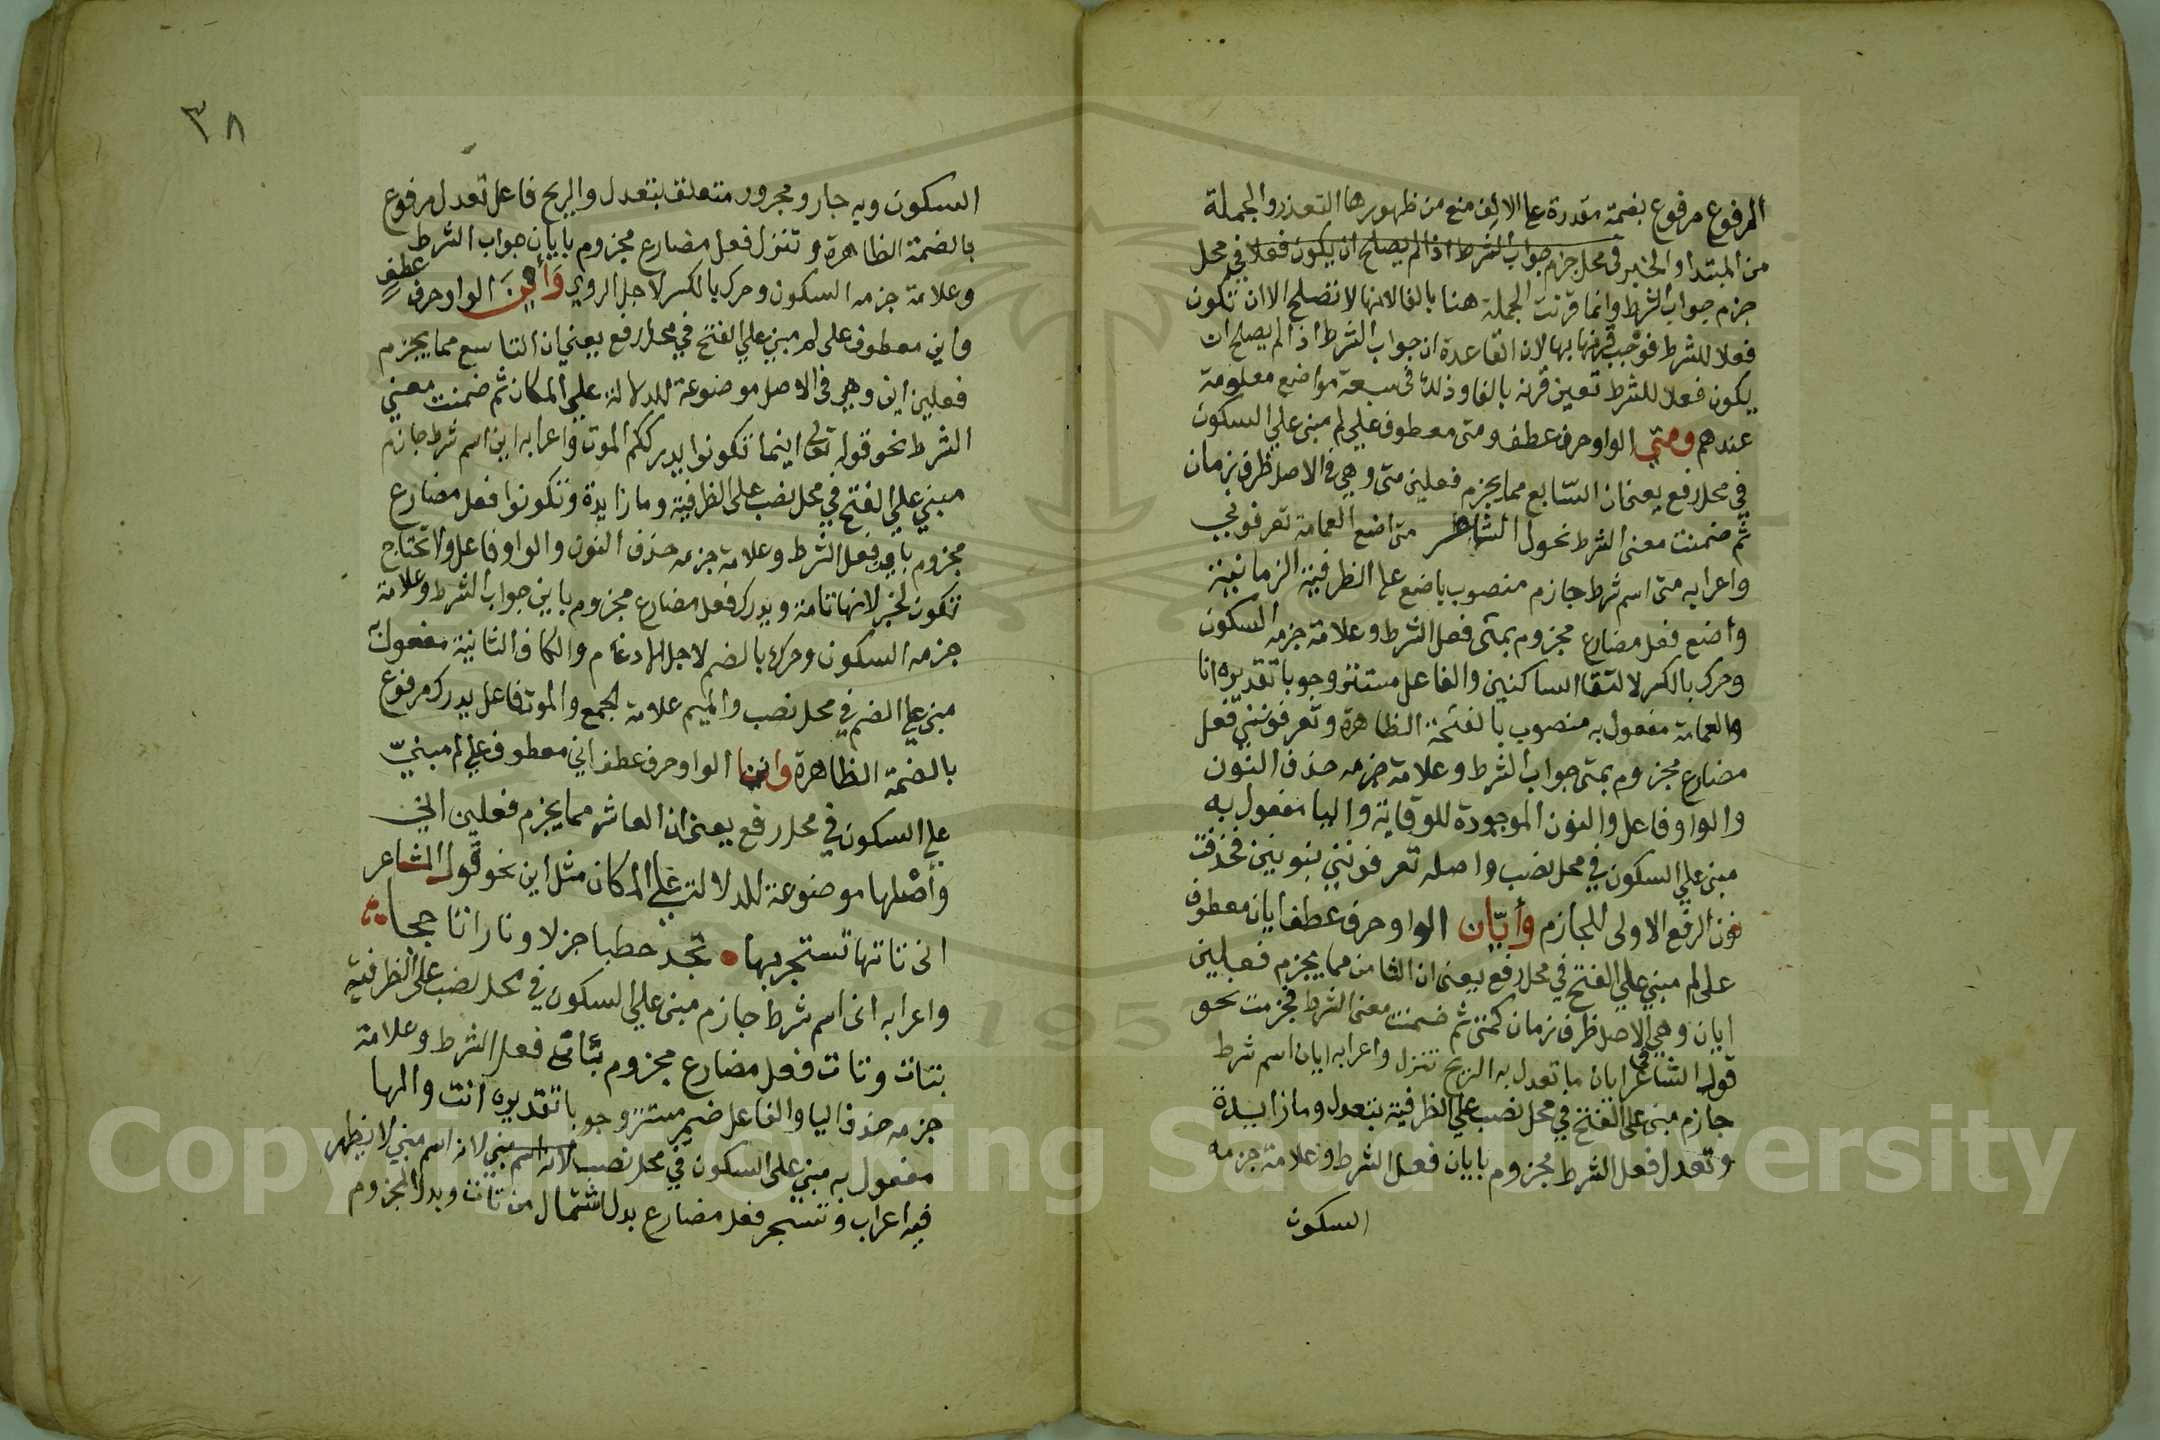 المرفوع مرفوع بضمة مقدرة على الالف منع من ظهورها التعذر والجملة
من المبتدا والخبر في محل جزم جواب الشرط اذا لم يصلح ان يكون فعلا في محل
جزم جواب الشرط وانما قرنت الجملة هنا بالفا لانها لا تصلح الا ان تكون
فعلا للشرط فوجب قرنها بها لان القاعدة ان جواب الشرط اذا لم يصلح ان
يكون فعلا للشرط تعين قرنه بالفا وذلك في سبعة مواضع معلومة
عندهم ومتى الواو حرف عطف ومتى معطوف على لم مبني على السكون
في محل رفع يعني ان السابع مما يجزم فعلين متى وهي في الاصل ظرف زمان
ثم ضمنت معنى الشرط نحو قول الشاعر متى اضع العمامة تعرفوني
واعرابه متى اسم شرط جازم منصوب باضع على الظرفية الزمانية
وأضع فعل مضارع مجزوم بمتى فعل الشرط وعلامة جزمه السكون
وحرك بالكسر لالتقا الساكنين والفاعل مستتر وجوبا تقديره انا
والعمامة مفعول به منصوب بالفتحة الظاهرة وتعرفونني فعل
مضارع مجزوم بمتى جواب الشرط وعلامة جزمه حذف النون
والواو فاعل والنون الموجودة للوقاية واليا مفعول به
مبني على السكون في محل نصب واصله تعرفونني بنونين فحذفت
نون الرفع الاولى للجازم وأيّان الواو حرف عطف ايان معطوف
على لم مبني على الفتح في محل رفع يعني ان الثامن مما يجزم فعلين
ايان وهي في الاصل ظرف زمان كمتى ثم ضمنت معنى الشرط فجزمت نحو
قول الشاعر ايان ما تعدل به الريح تنزل واعرابه ايان اسم شرط
جازم مبني على الفتح في محل نصب على الظرفية بتعدل وما زايدة
وتعدل فعل الشرط مجزوم بايان فعل الشرط وعلامة جزمه
السكون
٣٨
السكون وبه جار ومجرور متعلق بتعدل والريح فاعل تعدل مرفوع
بالضمة الظاهرة وتنزل فعل مضارع مجزوم بايان جواب الشرط
وعلامة جزمه السكون وحرك بالكسر لاجل الروي وَأَيْنَ الواو حرف عطف
واين معطوف على لم مبني على الفتح في محل رفع يعني ان التاسع مما يجزم
فعلين اين وهي في الاصل موضوعة للدلالة على المكان ثم ضمنت معنى
الشرط نحو قوله تعالى اينما تكونوا يدرككم الموت واعرابه اين اسم شرط جازم
مبني على الفتح في محل نصب على الظرفية وما زايدة وتكونوا فعل مضارع
مجزوم باين فعل الشرط وعلامة جزمه حذف النون والواو فاعل ولا تحتاج
تكون لخبر لانها تامة ويدرك فعل مضارع مجزوم باين جواب الشرط وعلامة
جزمه السكون وحرك بالضم لاجل الادغام والكاف الثانية مفعول به
مبني على الضم في محل نصب والميم علامة الجمع والموت فاعل يدرك مرفوع
بالضمة الظاهرة وانى الواو حرف عطف انى معطوف على لم مبنيّ
على السكون في محل رفع يعني ان العاشر مما يجزم فعلين انى
وأصلها موضوعة للدلالة على المكان مثل اين نحو قول الشاعر
انى تاتها تستجر بها تجد حطبا جزلا ونارا تاججا
واعرابه انى اسم شرط جازم مبني على السكون في محل نصب على الظرفية
بتات وتات فعل مضارع مجزوم بانى فعل الشرط وعلامة
جزمه حذف اليا والفاعل ضمير مستتر وجوبا تقديره انت والها
مفعول به مبني على السكون في محل نصب لانه اسم مبني لانه اسم مبني لا يظهر
فيه اعراب وتستجر فعل مضارع بدل اشتمال من تات وبدل المجزوم
Copyright © King Saud University
195